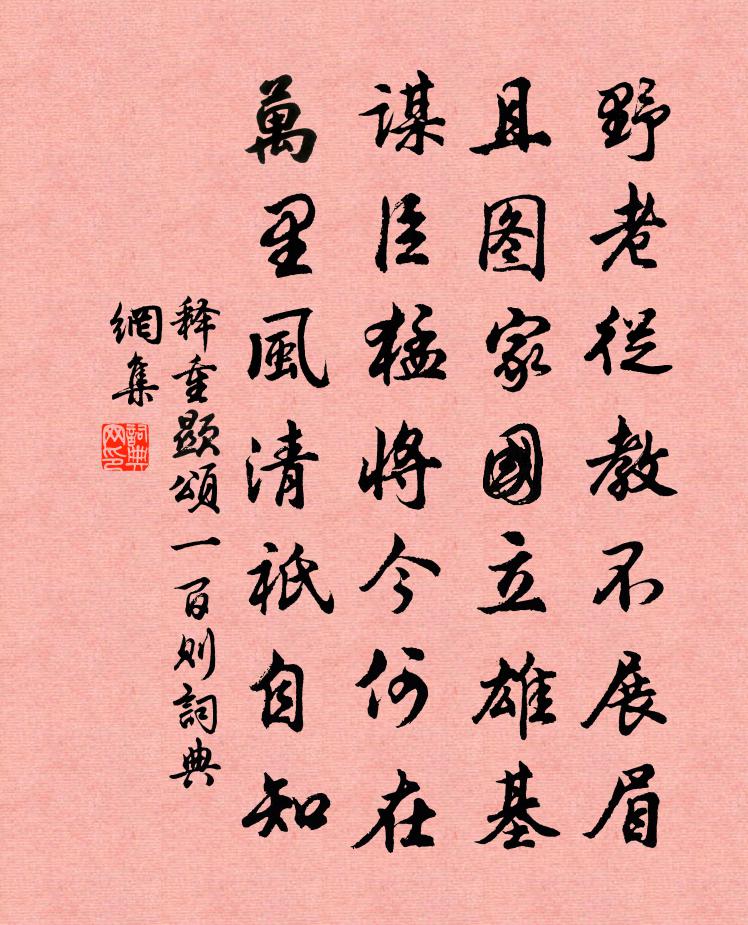 野老從教不展眉
且图家國立雄基
謀臣猛將今何在
萬里風清祇自知
释重顯頌一百则詞典
網集
詞典
网印